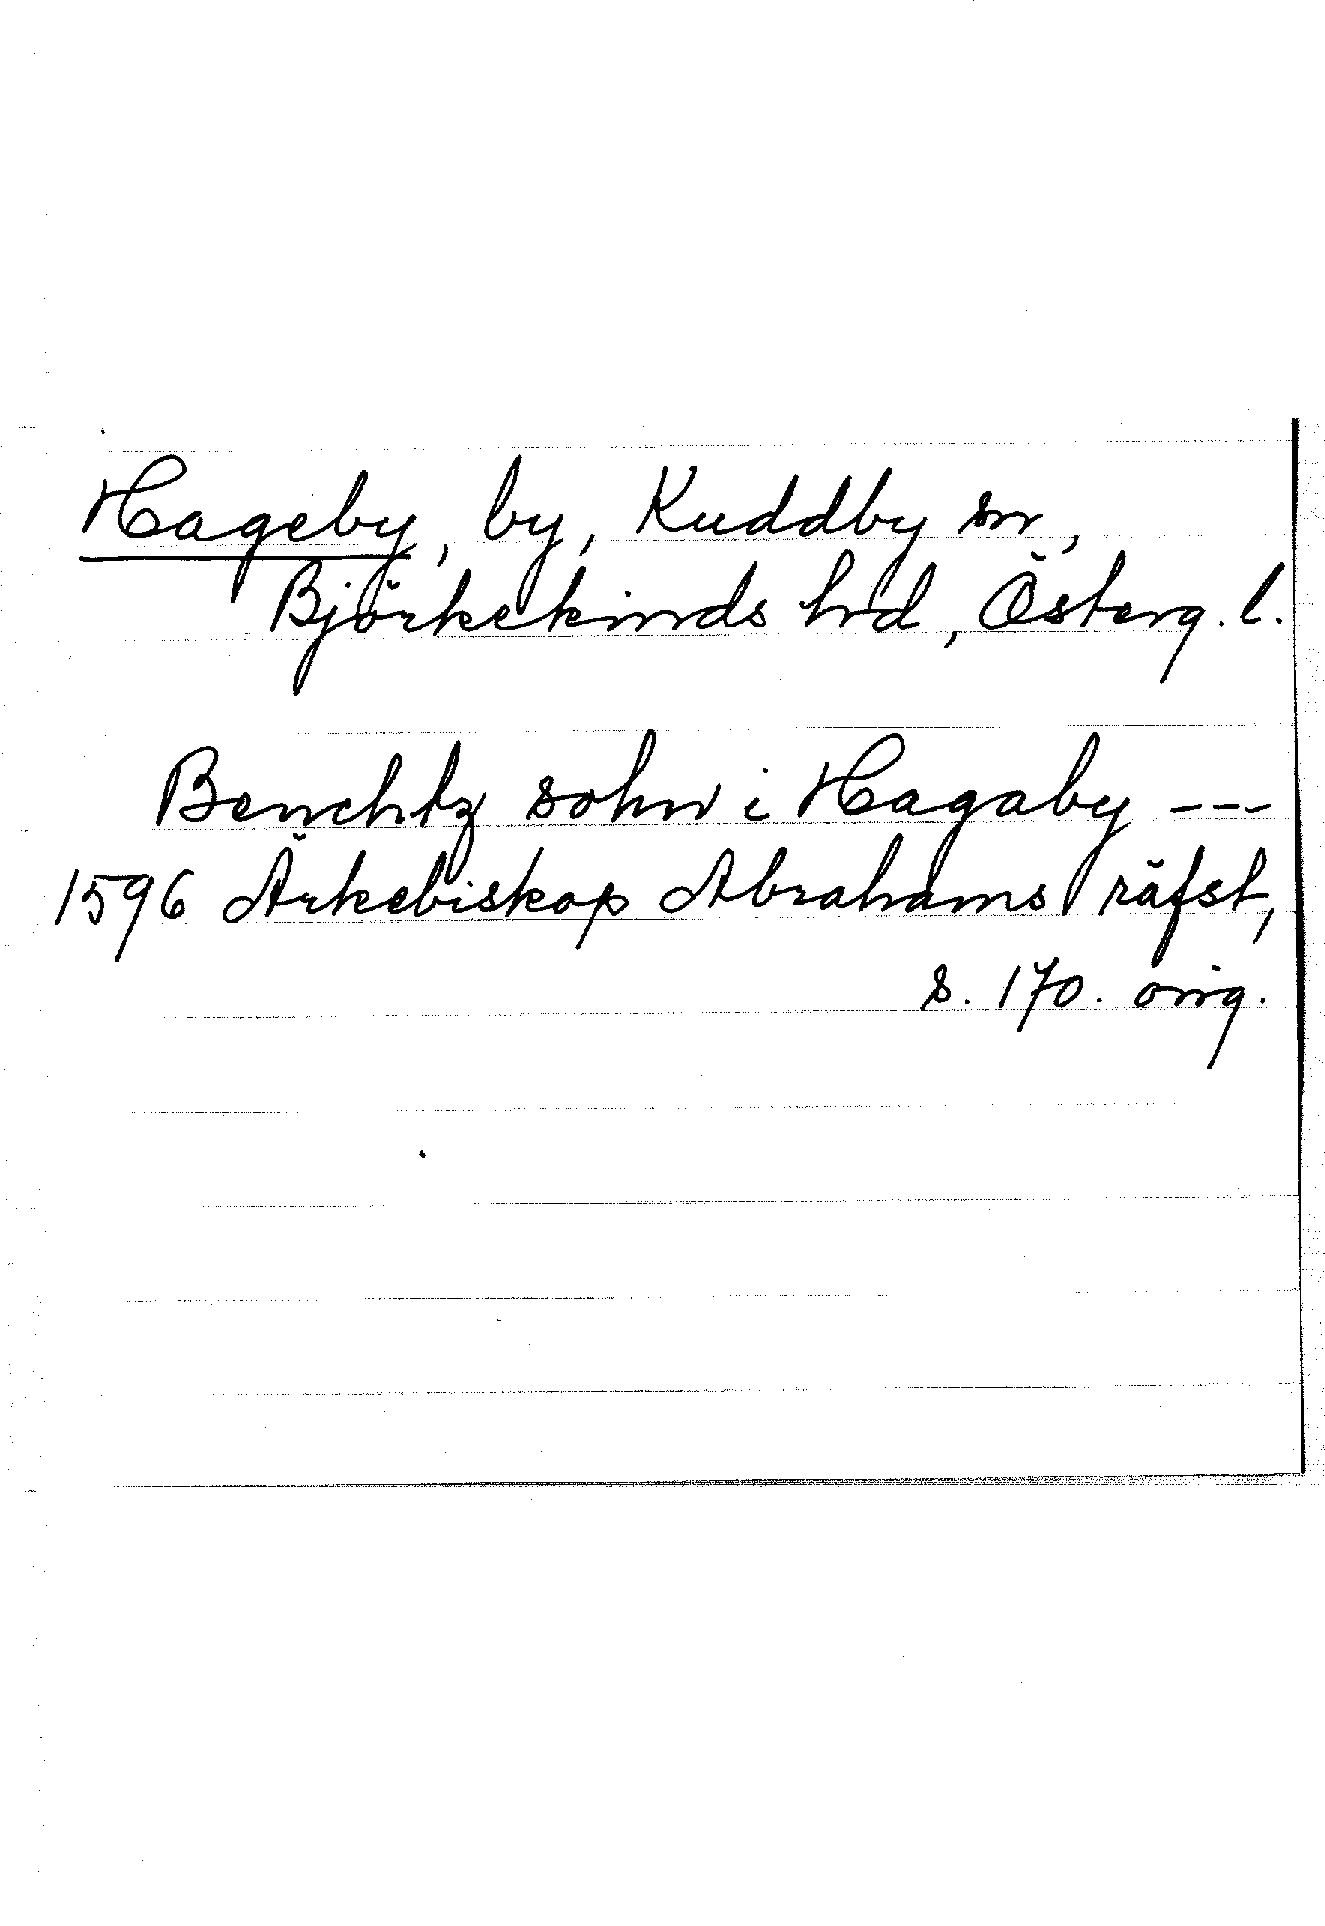 Hageby, by, Kuddby sn,
Björkekinds hrd, Österg. l.
Benchtz sohn i Hagaby ---
1596 Ärkebiskop Abrahams räfst,
s. 170. orig.